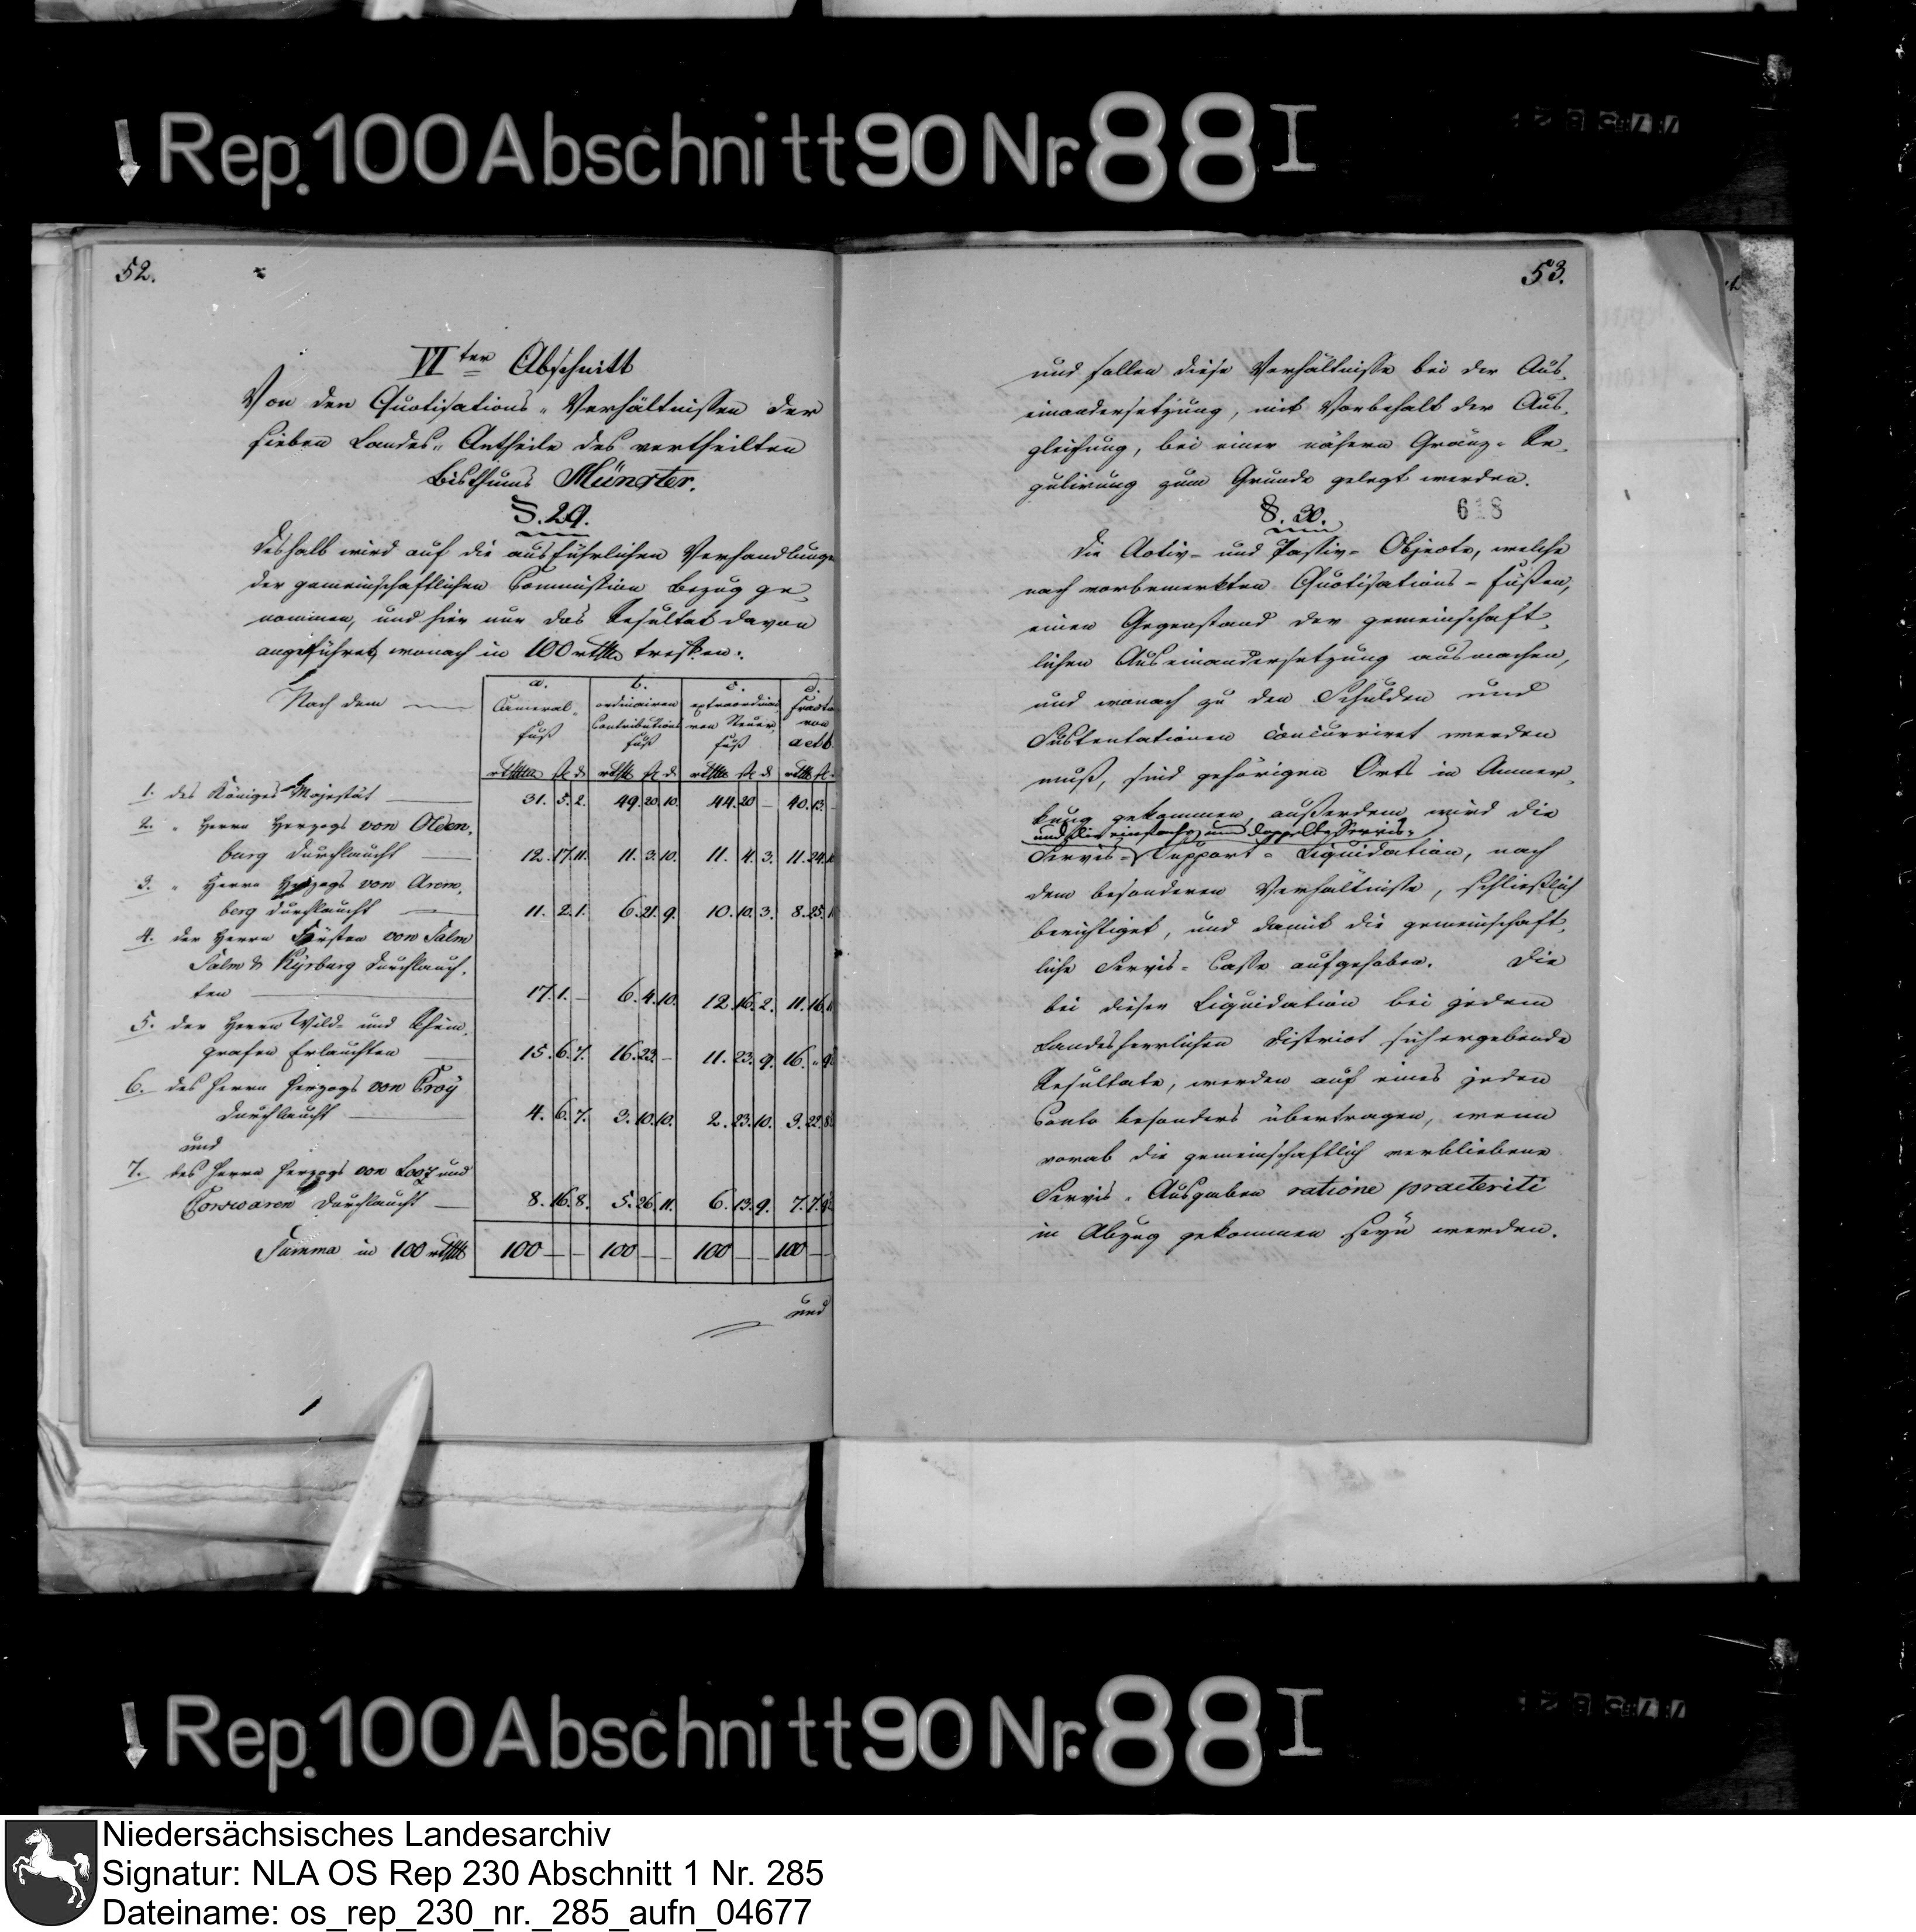 Rep. 100 Abschnitt 90 Nr. 88 I
52.
VIter Abschnitt
Von den Quotisations-Verhältnissen der
sieben Landes-Antheile des vertheilten
Bisthums Münster.
§. 29.
Deshalb wird auf die ausführlichen Verhandlunge
der gemeinschaftlichen Commission Bezug ge-
nommen, und hier nur das Resultat davon
angeführet, wonach in 100 rthlr treffen:
Nach dem
a. b. c. d.
Cameral- ordinairen extraordinai-
Contributions ren Steuer- von
fuß fuß fuß a et b
1. des Königs Majestät 31. 5. 2. 49. 20. 10. 44. 20 — 40. 13
2. " Herrn Herzogs von Olden-
burg Durchlaucht 12. 17. 11. 11. 3. 10. 11. 4. 3. 11. 24.
3. " Herrn Herzogs von Arem-
berg Durchlaucht 11. 2. 1. 6. 21. 9. 10. 10. 3. 8. 25.
4. der Herrn Fürsten von Salm
Salm & Kyrburg Durchlauch-
ten 17. 1. — 6. 4. 10. 12. 16. 2. 11. 16.
5. der Herrn Wild- und Rhein-
grafen Erlauchten 15. 6. 7. 16. 23. — 11. 23. 9. 16. "
6. des Herrn Herzogs von Croÿ
Durchlaucht 4. 6. 7. 3. 10. 10. 2. 23. 10. 3. 22.
und
7. des Herrn Herzogs von Looz und
Corswaren Durchlaucht 8. 16. 8. 5. 26. 11. 6. 13. 9. 7. 7.
Summa in 100 rthlr 100 — — 100 — — 100 — — 100 —
und
53.
und sollen diese Verhältnisse bei der Aus-
einandersetzung, mit Vorbehalt der Aus-
gleichung, bei einer nähern Gränz-Re-
gulirung zum Grunde gelegt werden.
§. 30.
618
Die Activ- und Passiv-Objecte, welche
nach vorbemerkten Quotisations-Füßen,
einen Gegenstand der gemeinschaft-
lichen Auseinandersetzung ausmachen,
und wonach zu den Schulden und
Sustentationen concurriret werden
muß, sind gehörigen Orts in Anmer-
kung gekommen, außerdem wird die
und die einfache und doppelte Servis-
Servis- Support-Liquidation, nach
dem besonderen Verhältnisse, schließlich
berichtiget, und damit die gemeinschaft-
liche Servis-Casse aufgehoben. Die
bei dieser Liquidation bei jedem
Landesherrlichen District sich ergebende
Resultate, werden auf eines jeden
Conto besonders übertragen, wenn
vorab die gemeinschaftlich verbliebene
Servis-Ausgaben ratione praeteriti
in Abzug gekommen seyn werden.
Rep. 100 Abschnitt 90 Nr. 88 I
Niedersächsisches Landesarchiv
Signatur: NLA OS Rep 230 Abschnitt 1 Nr. 285
Dateiname: os_rep_230_nr._285_aufn_04677